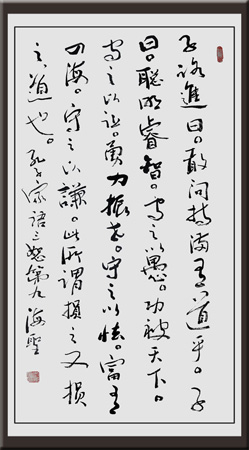 子路進曰。敢問持滿有道乎。子
曰。聰明睿智。守之以愚。功被天下。
守之以讓。勇力振世。守之以怯。富有
四海。守之以謙。此所謂損之又損
之道也。孔子家語三恕第九 海聖